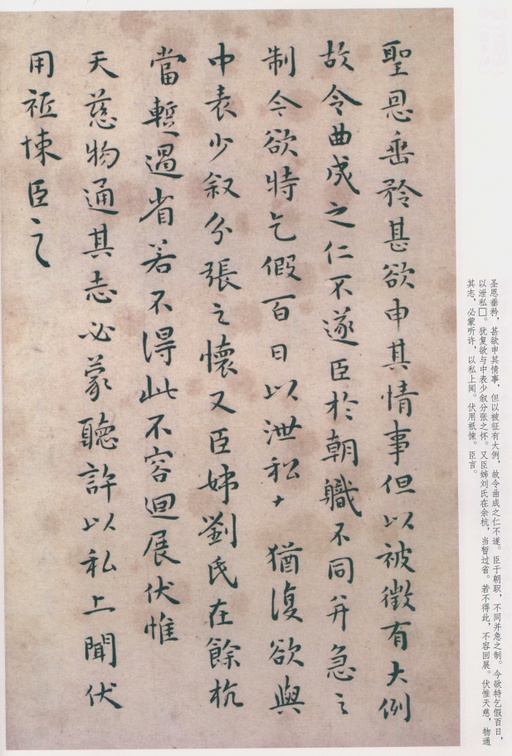 聖恩垂矜甚欲申其情事但以被徵有大例
故令曲成之仁不遂臣於朝職不同并急之
制今欲特乞假百日以泄私
猶復欲與
中表少叙分張之懷又臣姊劉氏在餘杭
當暫過省若不得此不容迴展伏惟
天慈物通其志必蒙聽許以私上聞伏
用祗悚臣言
圣恩垂矜，甚欲申其情事，但以被征有大例，故令曲成之仁不遂。臣于朝职，不同并急之制。今欲特乞假百日，
以泄私□。犹复欲与中表少叙分张之怀。又臣姊刘氏在余杭，当暂过省。若不得此，不容回展。伏惟天慈，物通
其志，必蒙听许，以私上闻。伏用祗悚。臣言。